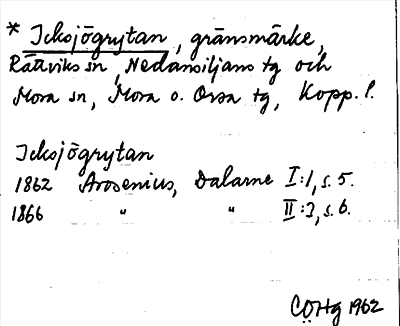 * Icksjögrytan, gränsmärke,
Rättviks sn, Nedansiljans tg och
Mora sn, Mora o. Orsa tg, Kopp. l.
Icksjögrytan
1862 Arosenius, Dalarne I:1, s. 5.
1866 " " II:3, s. 6.
CÖHg 1962